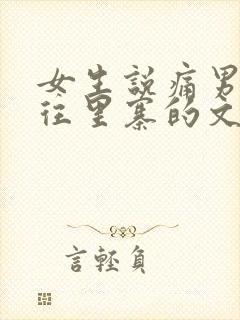 女生説痛男
往里寨的文
言輕負